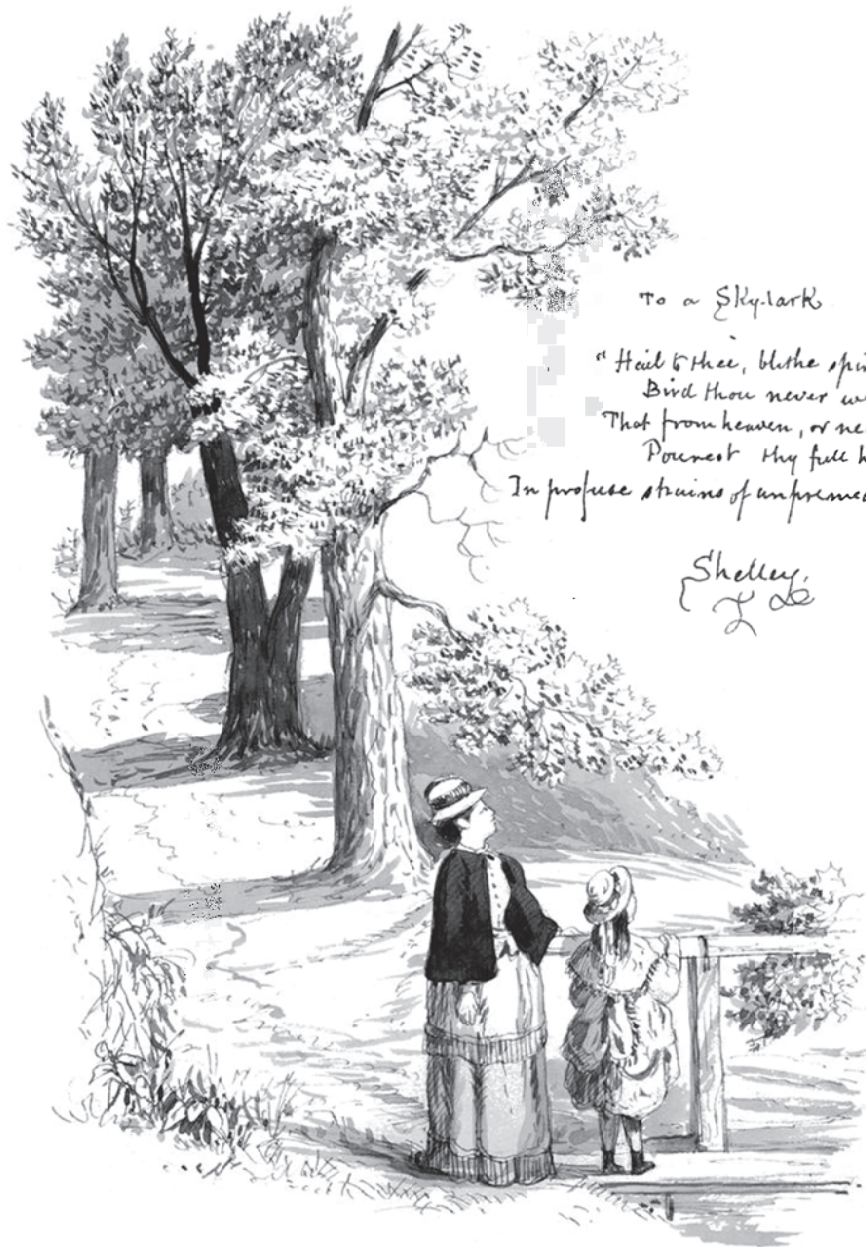 To a Sky-lark
"Hail to thee, blithe spi
Bird thou never we
That from heaven, or ne
Pourest thy full h
In profuse strains of unpremed
Shelley.